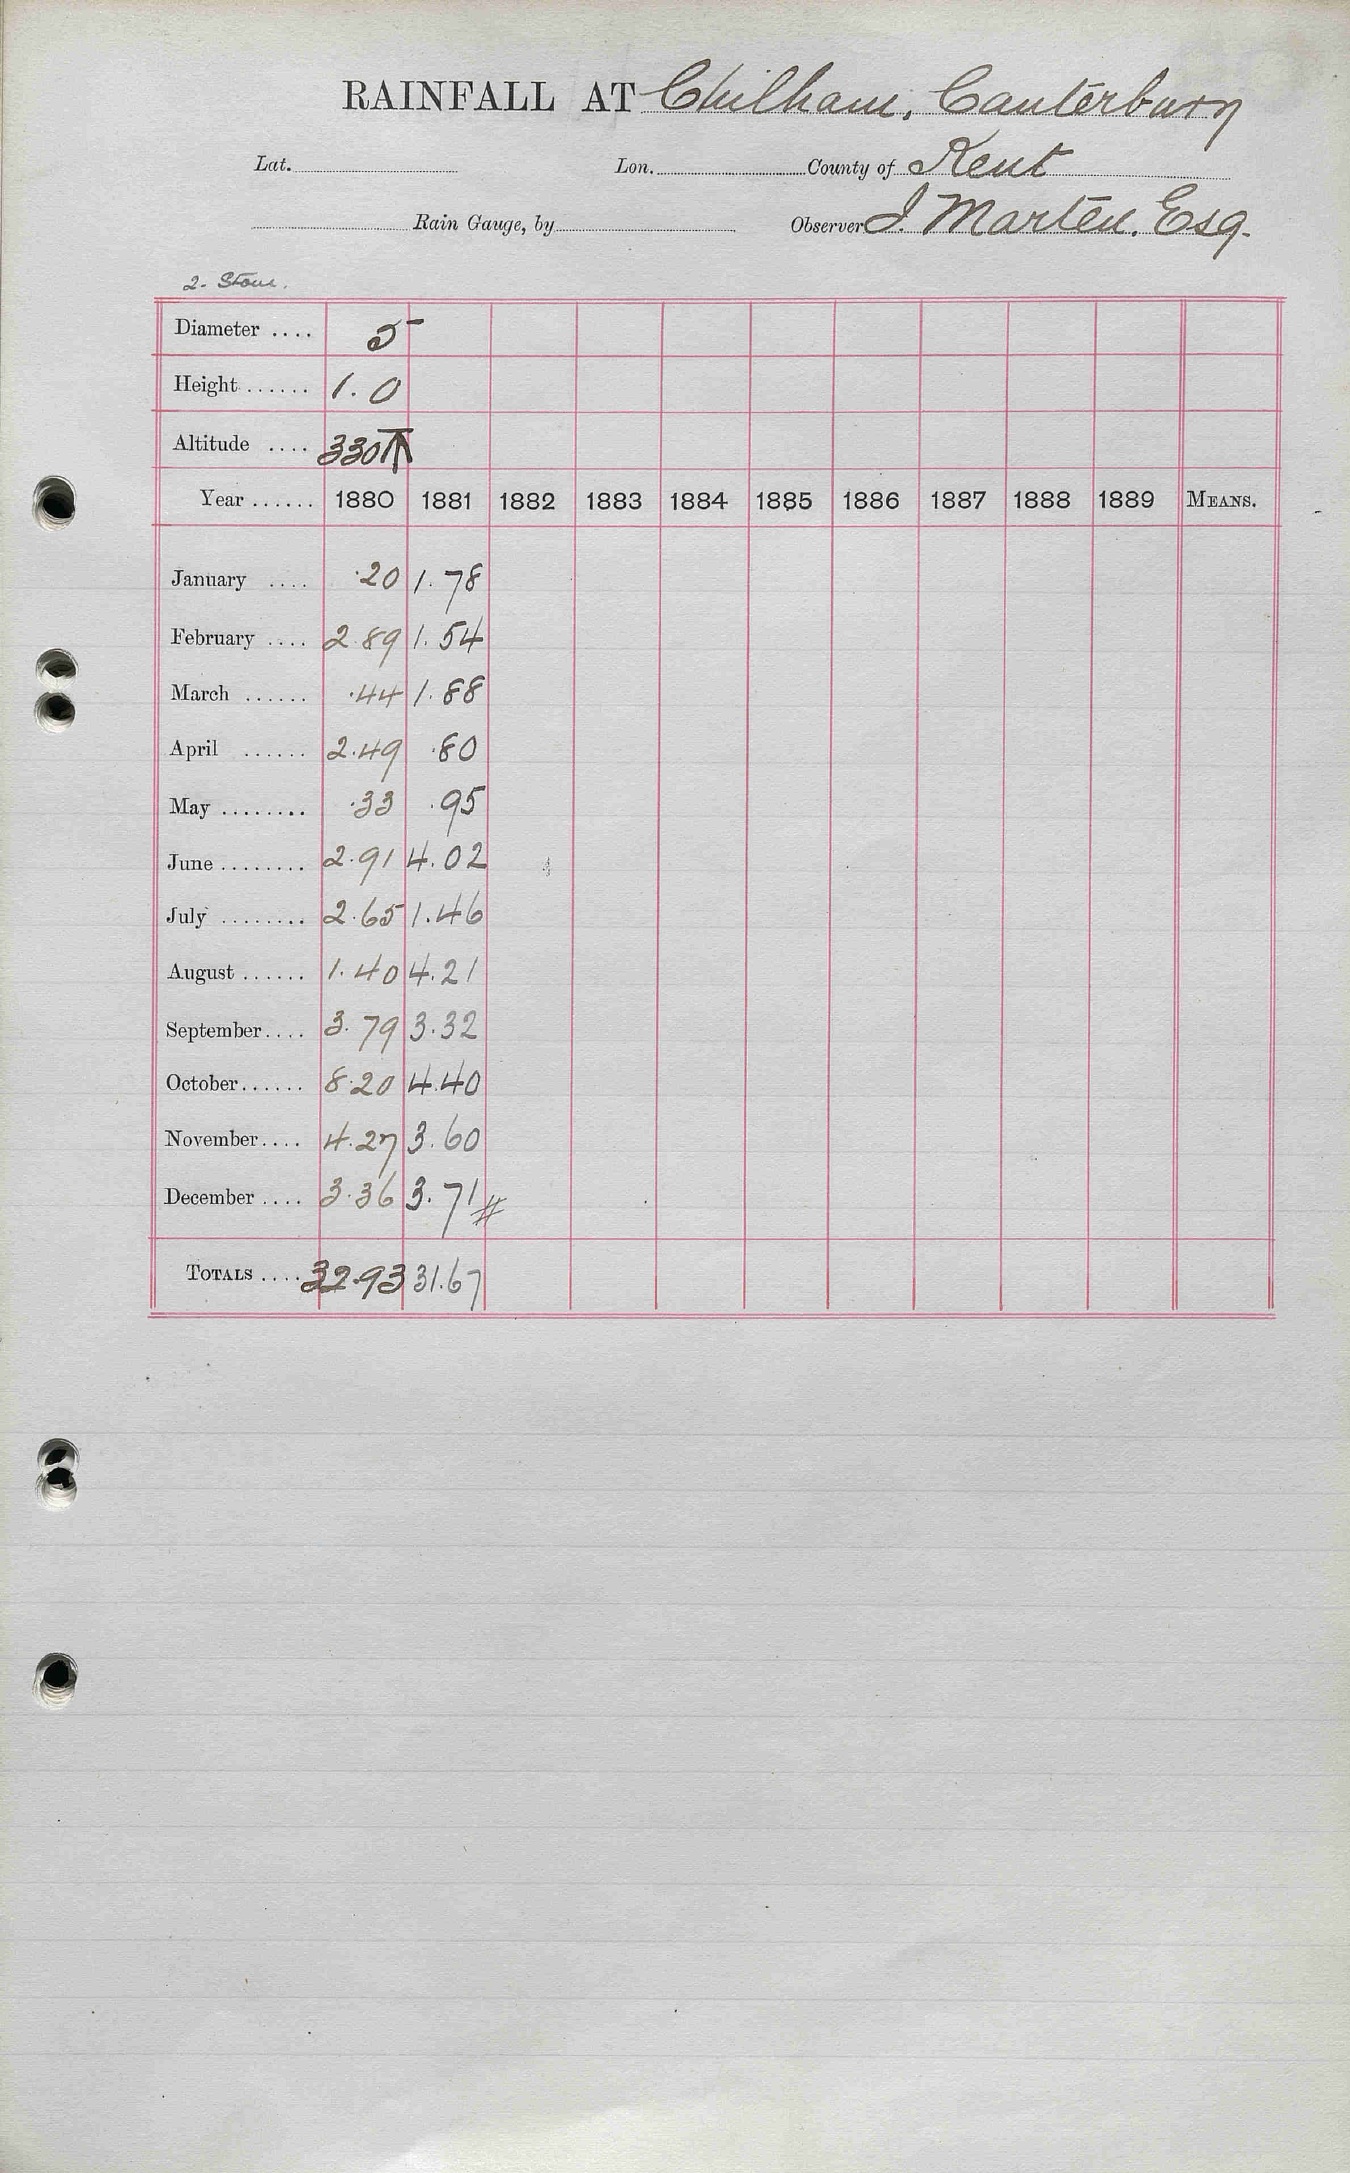 RAINFALL AT Chilham, Canterbury
Lat. Lon. County of Kent
Rain Gauge, by Observer J. Marten. Esq.
2. Stour.
Diameter .... 5
Height ...... 1.0
Altitude .... 330
Year ...... 1880 1881 1882 1883 1884 1885 1886 1887 1888 1889 MEANS.
January .... .20 1.78
February .... 2.89 1.54
March ...... .44 1.88
April ...... 2.49 .80
May ........ .33 .95
June ........ 2.91 4.02
July ........ 2.65 1.46
August ...... 1.40 4.21
September.... 3.79 3.32
October...... 8.20 4.40
November.... 4.27 3.60
December .... 3.36 3.71 #
TOTALS .... 32.93 31.67